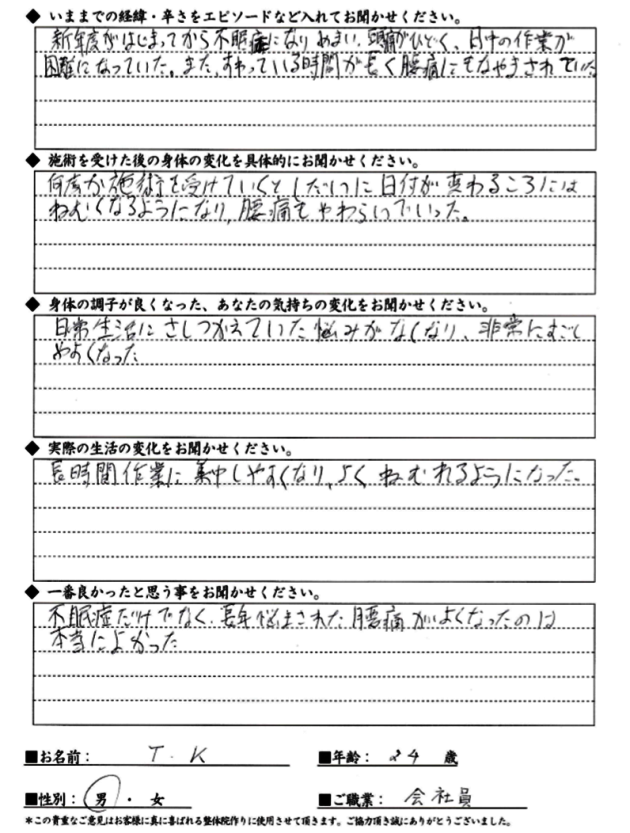 ◆ いままでの経緯・辛さをエピソードなど入れてお聞かせください。
新年度がはじまってから不眠症になり めまい、頭痛がひどく、日中の作業が
困難になっていた。また、すわっている時間が長く腰痛にもなやまされていた
◆ 施術を受けた後の身体の変化を具体的にお聞かせください。
何度か施術を受けていくとしだいに日付が変わるころには
ねむくなるようになり、腰痛もやわらいでいった。
◆ 身体の調子が良くなった、あなたの気持ちの変化をお聞かせください。
日常生活にさしつかえていた悩みがなくなり、非常にすごし
やすくなった
◆ 実際の生活の変化をお聞かせください。
長時間作業に集中しやすくなり、よくねむれるようになった。
◆ 一番良かったと思う事をお聞かせください。
不眠症だけでなく、長年悩まされた腰痛がよくなったのは
本当によかった
■お名前： T.K ■年齢： 24 歳
■性別： 男 ・ 女 ■ご職業： 会社員
*この貴重なご意見はお客様に真に喜ばれる整体院作りに使用させて頂きます。ご協力頂き誠にありがとうございました。